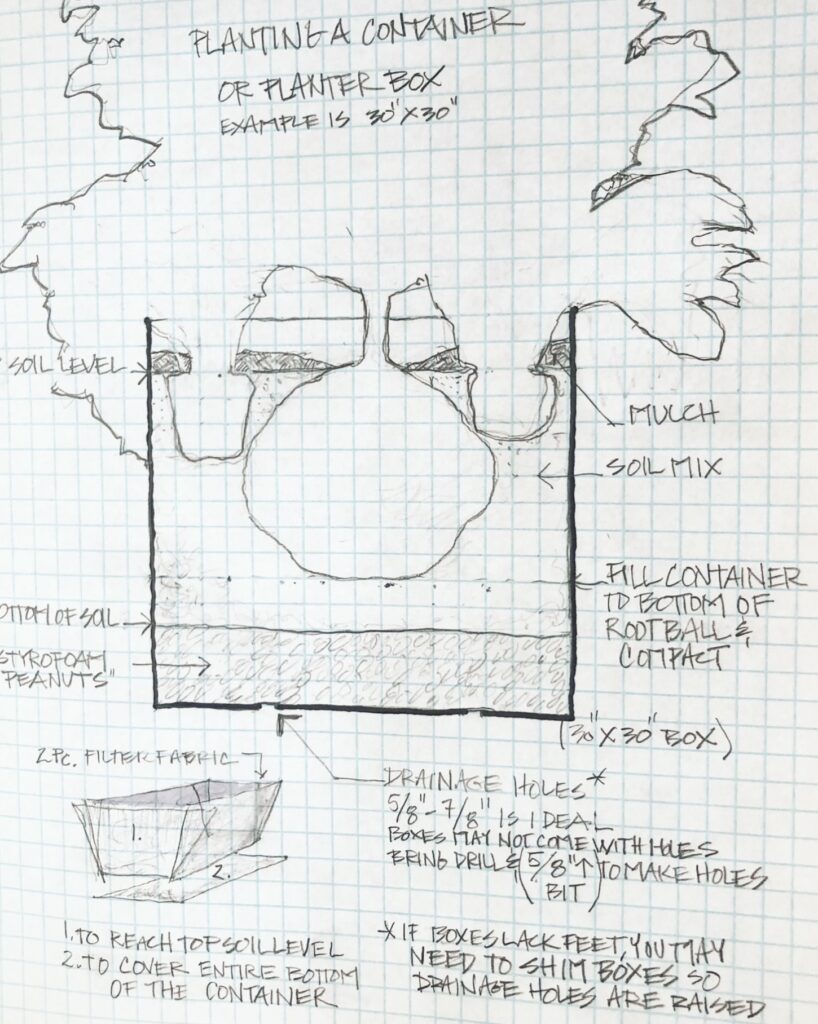 PLANTING A CONTAINER
OR PLANTER BOX
EXAMPLE IS 30"X30"
SOIL LEVEL
MULCH
SOIL MIX
FILL CONTAINER
TO BOTTOM OF
ROOTBALL &
COMPACT
OTTOM OF SOIL
STYROFOAM
PEANUTS"
(30"X30" BOX)
2 PC. FILTER FABRIC
1.
2.
DRAINAGE HOLES*
5/8"-7/8" IS IDEAL
BOXES MAY NOT COME WITH HOLES
BRING DRILL & (5/8"↑ BIT) TO MAKE HOLES
1. TO REACH TOP SOIL LEVEL
2. TO COVER ENTIRE BOTTOM
OF THE CONTAINER
*IF BOXES LACK FEET, YOU MAY
NEED TO SHIM BOXES SO
DRAINAGE HOLES ARE RAISED